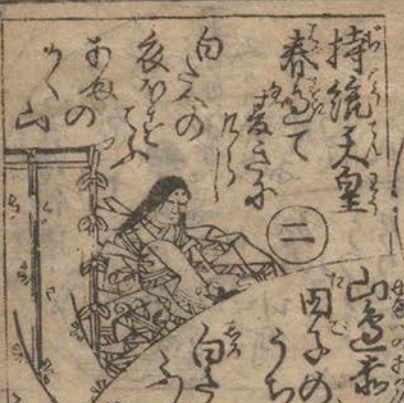 持統天皇
春過て
夏きに
けらし
白たへの
衣ほす
てふ
あまの
かく山
二
山邊赤
田子の
うち
白た
ふ